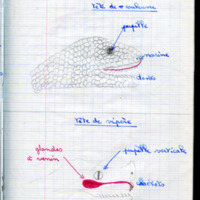 tête de couleuvre
pupille
narine
dents
tête de vipère
glandes
à venin
pupille verticale
crochets